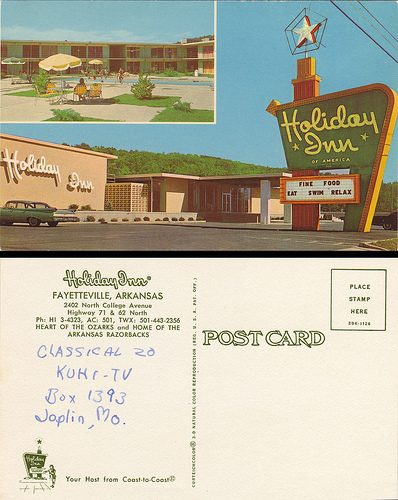 Holiday
Inn
OF AMERICA
FINE FOOD
EAT SWIM RELAX
Holiday Inn
Holiday Inn®
FAYETTEVILLE, ARKANSAS
2402 North College Avenue
Highway 71 & 62 North
Ph: HI 3-4323, AC: 501, TWX: 501-443-2356
HEART OF THE OZARKS and HOME OF THE
ARKANSAS RAZORBACKS
CLASSICAL 20
KUHI-TV
Box 1393
Joplin, Mo.
Holiday
Inn
Your Host from Coast-to-Coast®
CURTEICHCOLOR® 3-D NATURAL COLOR REPRODUCTION (REG. U. S. A. PAT. OFF.)
POST CARD
PLACE
STAMP
HERE